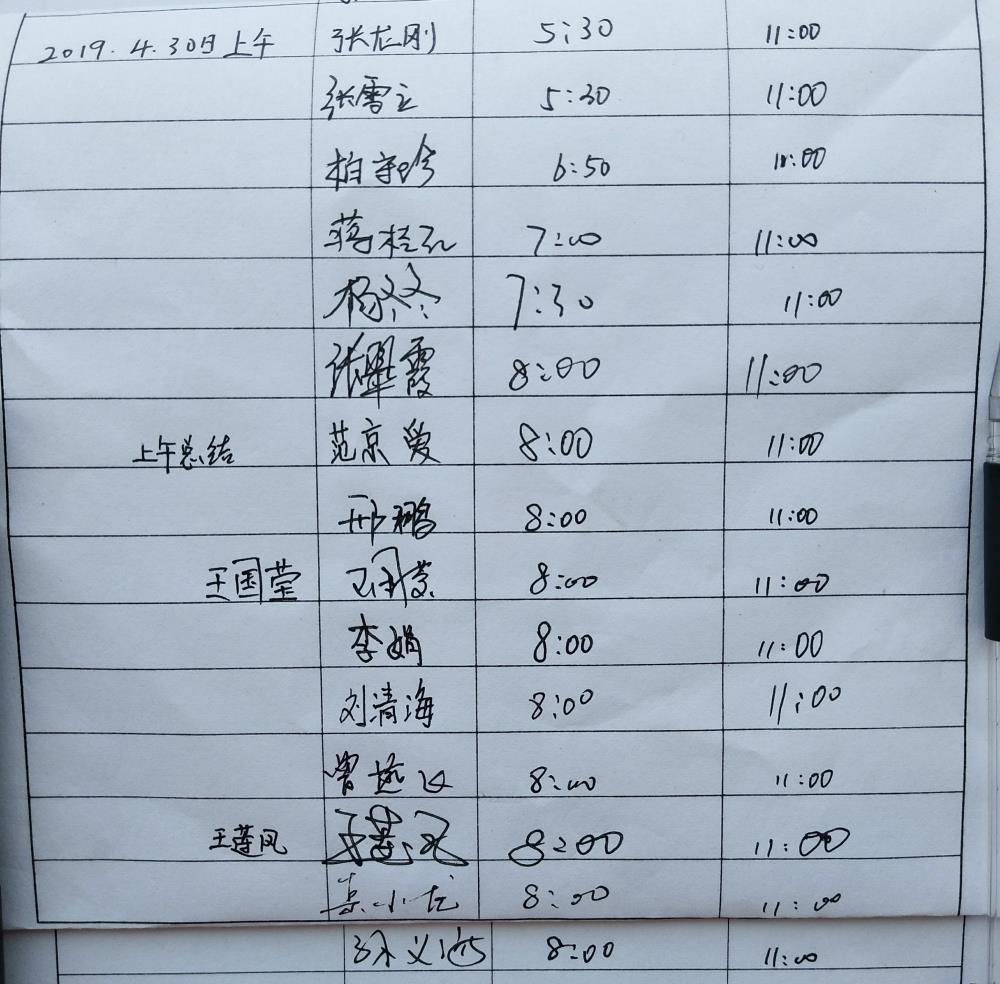 2019.4.30日上午 张龙刚 5:30 11:00
张雪立 5:30 11:00
柏守珍 6:50 11:00
蒋桂孔 7:00 11:00
杨冬冬 7:30 11:00
张翠霞 8:00 11:00
上午总结 范京爱 8:00 11:00
邢鹏 8:00 11:00
王国莹 王国莹 8:00 11:00
李娟 8:00 11:00
刘清海 8:00 11:00
曾 8:00 11:00
王莲凤 王莲凤 8:00 11:00
小龙 8:00 11:00
孙义海 8:00 11:00